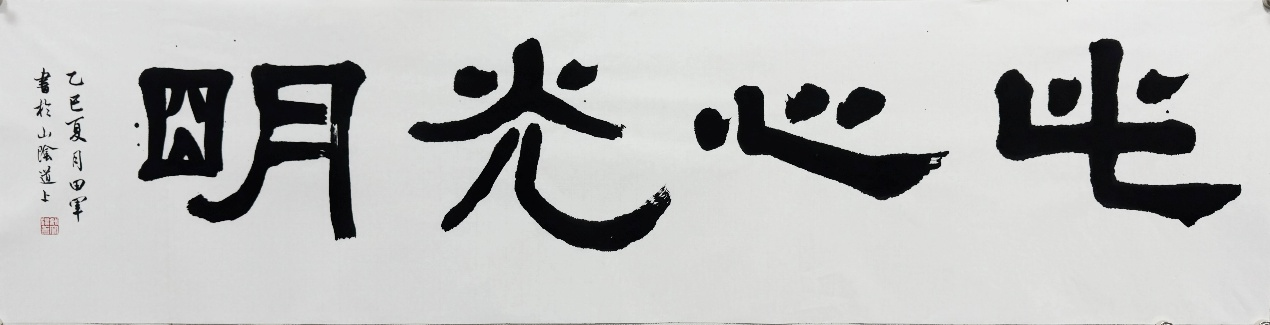 此心光明
乙巳夏月田軍
書於山陰道上